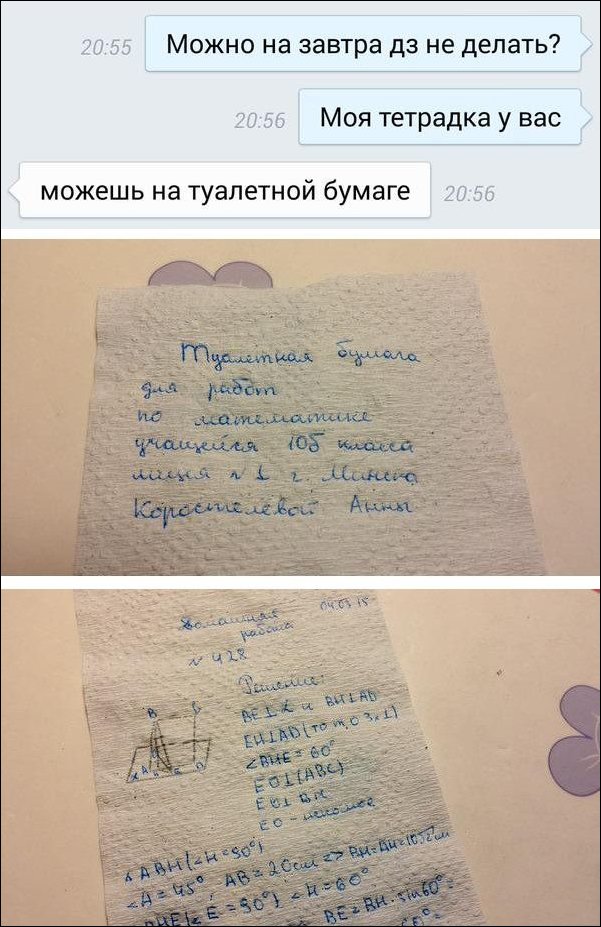 20:55
Можно на завтра дз не делать?
20:56
Моя тетрадка у вас
можешь на туалетной бумаге
20:56
Туалетная бумага
для работ
по математике
учащейся 10Б класса
лицея №1 г. Минска
Коростелёвой Анны
Домашняя
работа
04.03.15
№428
Решение:
BE⊥α и BH⊥AD
EH⊥AD (по т. о 3х⊥)
∠BHE = 60°
EO⊥(ABC)
EO⊥BH
EO - искомое
ABH (∠H=90°)
∠A = 45° AB = 20см => BH=AH=10√2см
BHE (∠E=90°) ∠H=60°
BE=BH·sin60°=